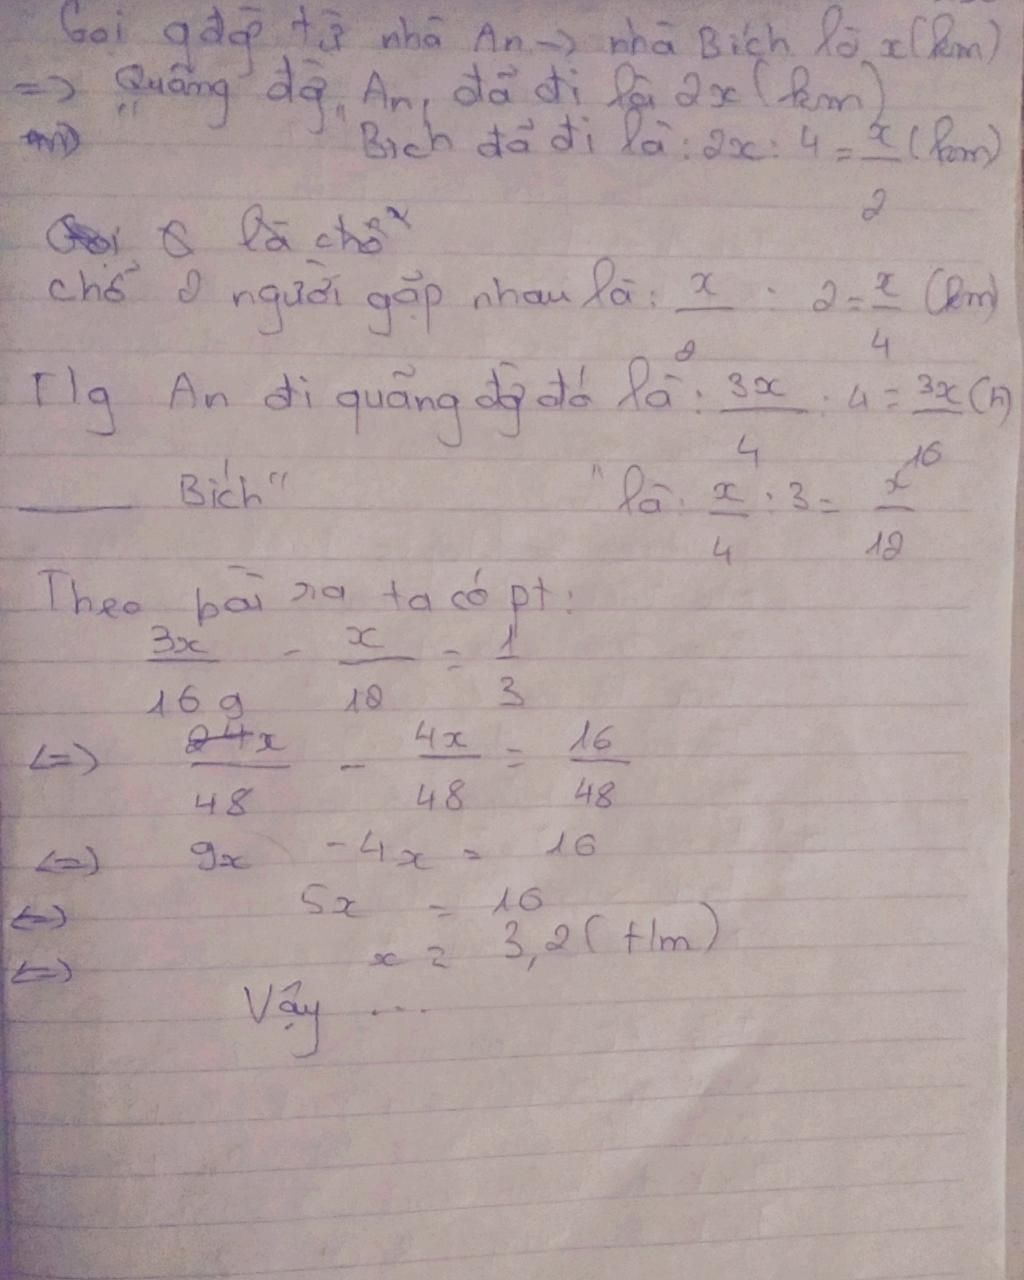 Gọi qđg từ nhà An -> nhà Bích là x (km)
=> Quãng đg An đã đi là 2x (km)
" " Bích đã đi là: 2x : 4 = x/2 (km)
là chỗ
chỗ 2 người gặp nhau là: x/2 : 2 = x/4 (km)
T/g An đi quãng đg đó là: 3x/4 : 4 = 3x/16 (h)
___ Bích " " là: x/4 : 3 = x/12
Theo bài ra ta có pt:
3x/16 - x/12 = 1/3
<=> 9x/48 - 4x/48 = 16/48
<=> 9x - 4x = 16
<=> 5x = 16
<=> x = 3,2 (t/m)
Vậy ...